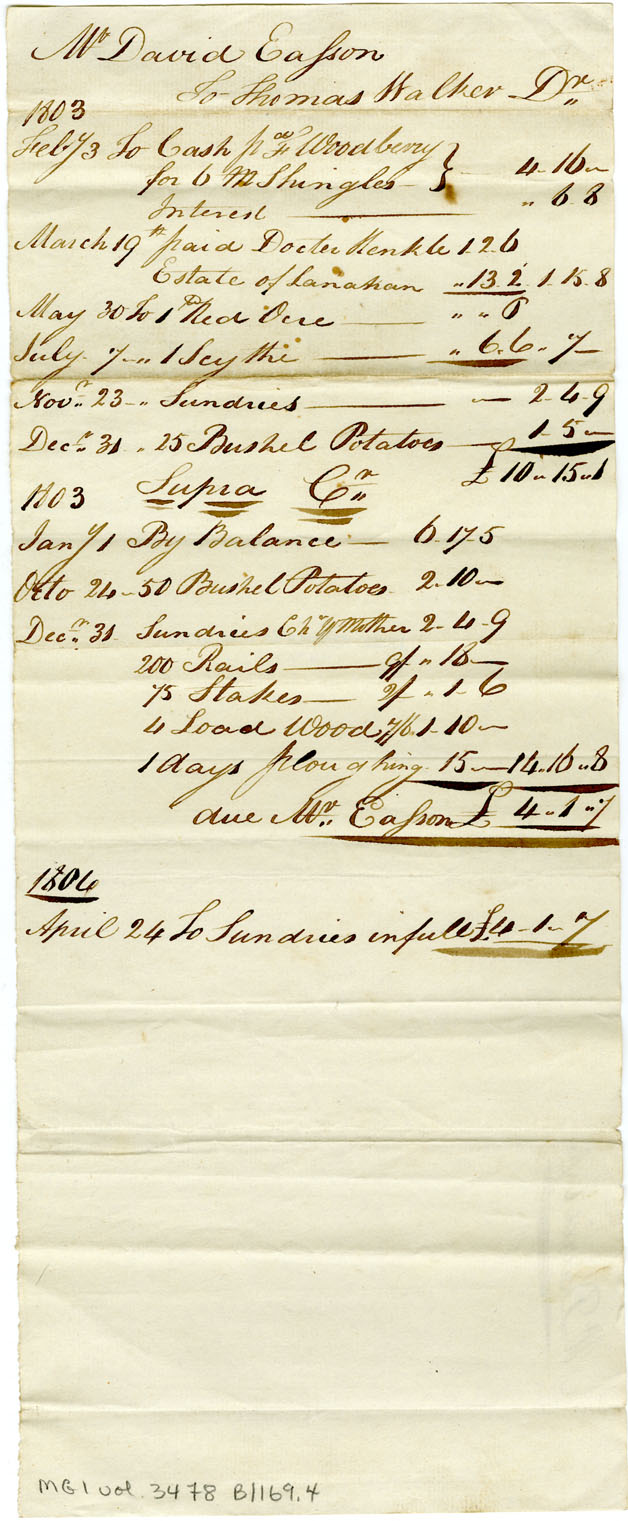 Mr David Eaſson
To Thomas Walker Dr
1803
Feby 3 To Cash pd F Woodberry
for 6 M Shingles } 4„16„
Interest — „ 6 8
March 19th paid Docter Henkle 1 2 6
Estate of Lanahan „ 13 2 1 15 8
May 30 To 1 Red — „ „ 6
July 7 „ 1 Scythe — „ 6„ 6 „ 7 –
Novr 23 „ Sundries — 2 4 9
Decr 31 „ 25 Bushel Potatoes — 1 5 „
£ 10 „ 15 „ 1
1803 Supra Cr
Jany 1 By Balance — 6 17 5
Octo 24 – 50 Bushel Potatoes 2 10 –
Decr 31 Sundries Chd yr Mother 2 4 9
200 Rails — 9/ „ 18 –
75 Stakes — 2/ „ 1 6
4 Load Wood 7/6 1 10 –
1 days ploughing 15 – 14 „ 16 „ 8
due Mr Eaſson £ 4 „ 1 „ 7
1804
April 24 To Sundries in full £4 – 1 „ 7
MG1 vol. 3478 B/169.4